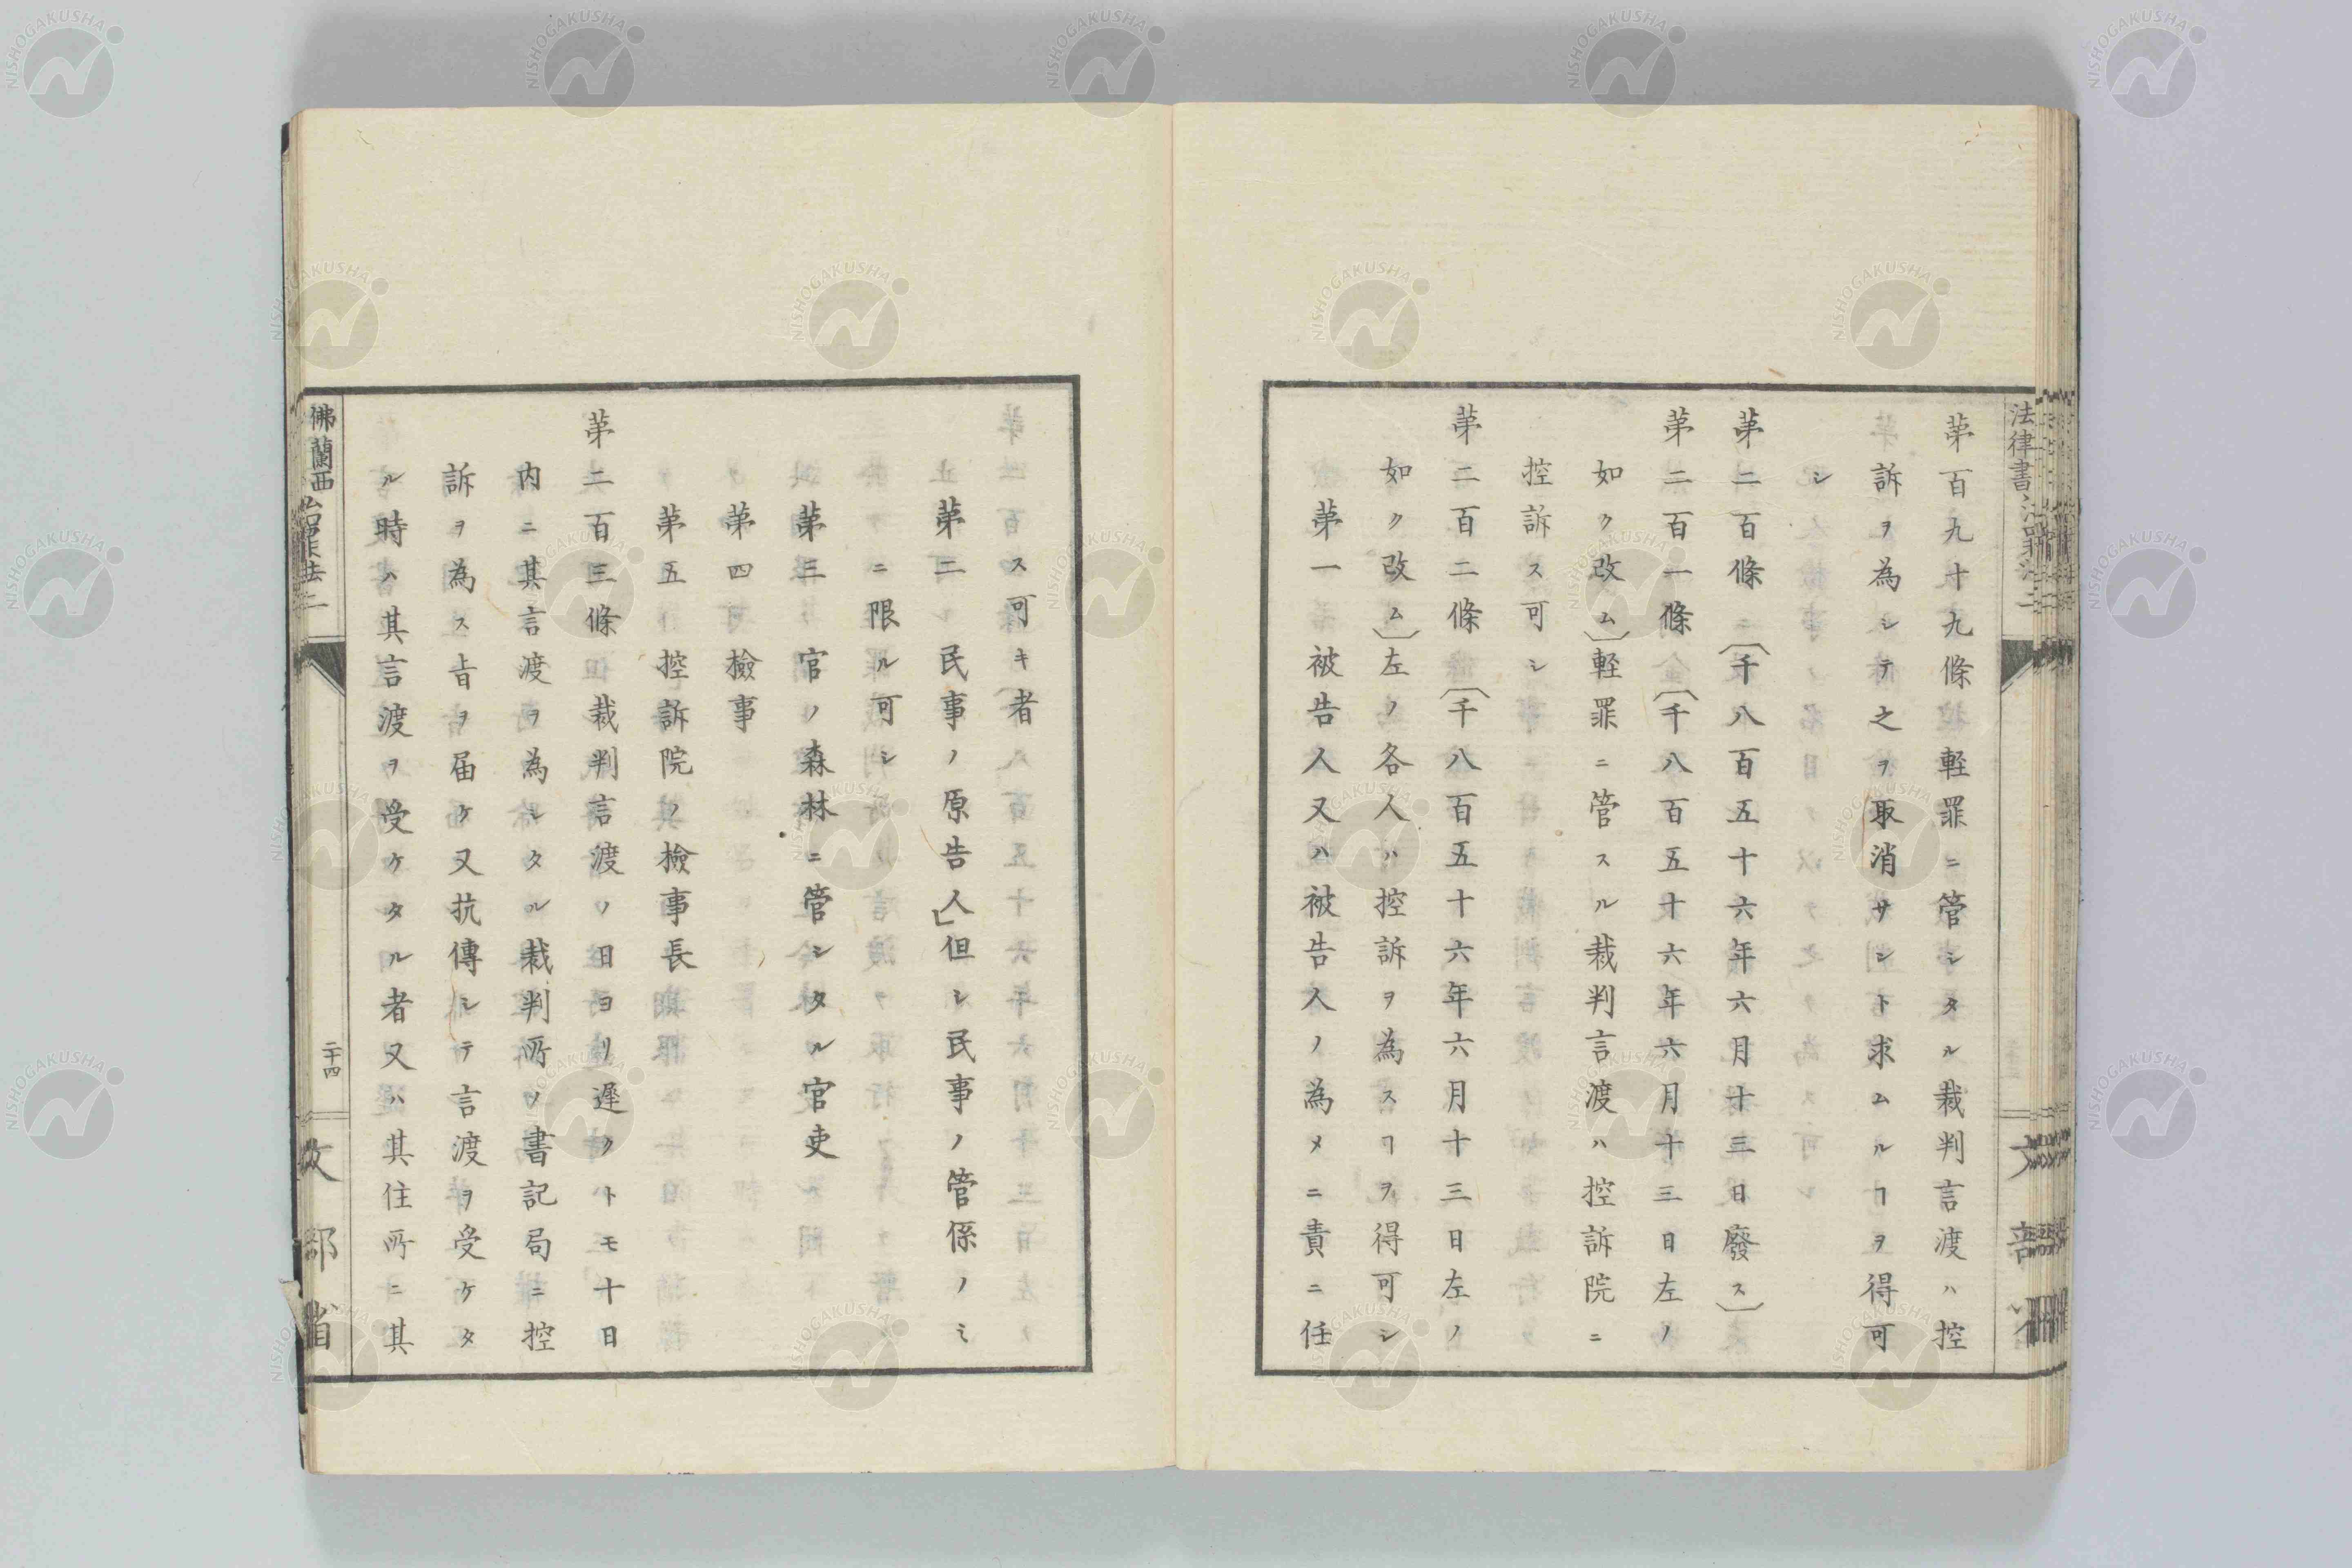 第百九十九條輕罪ニ管シタル裁判言渡ハ控
訴ヲ為シテ之ヲ取消サシト求ムルヿヲ得可
シ
第二百條〔千八百五十六年六月十三日廢ス〕
第二百一條〔千八百五十六年六月十三日左ノ
如ク改ム〕輕罪ニ管スル裁判言渡ハ控訴院ニ
控訴ス可シ
第二百二條〔千八百五十六年六月十三日左ノ
如ク改ム〕左ノ各人ハ控訴ヲ為スヿヲ得可シ
第一被告人又ハ被告人ノ為メニ責ニ任
ス可キ者
第二民事ノ原告人」但シ民事ノ管係ノミ
ニ限ル可シ
第三官ノ森林ニ管シタル官吏
第四檢事
第五控訴院ノ檢事長
第二百三條裁判言渡ノ日ヨリ遲クトモ十日
内ニ其言渡ヲ為シタル裁判所ノ書記局ニ控
訴ヲ為ス旨ヲ届ケ又抗傳シテ言渡ヲ受ケタ
ル時ハ其言渡ヲ受ケタル者又ハ其住所ニ其
佛蘭西治罪法二
二十四
文部省
NISHOGAKUSHA